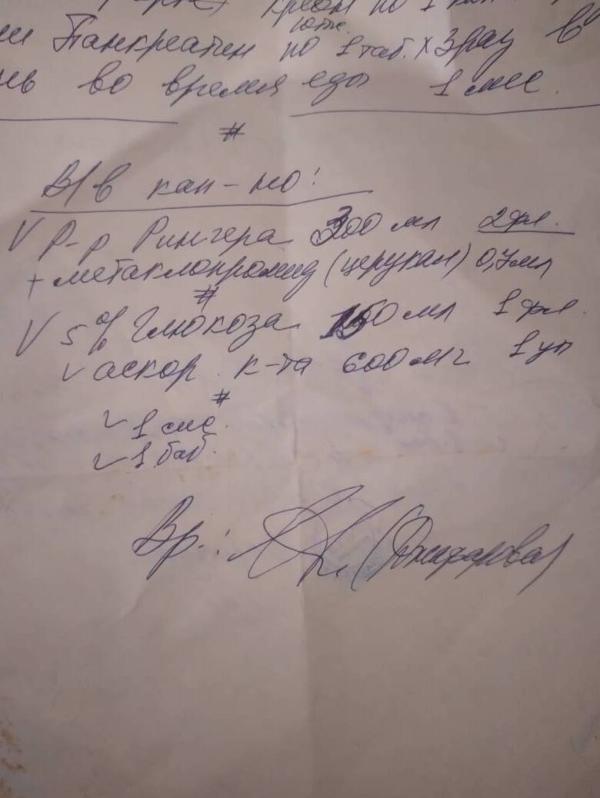 Креон по 1 кап
или Панкреатин по 1 таб. x 3 раз в
день во время еды 1 мес.
#
В/в кап-но:
V Р-р Рингера 300 мл 2 фл.
+ метаклопромид (церукал) 0,7 мл
#
V 5% Глюкоза 150 мл 1 фл.
✓ аскор. к-та 600 мг 1 уп
#
✓ 1 сис.
✓ 1 баб.
Вр.: